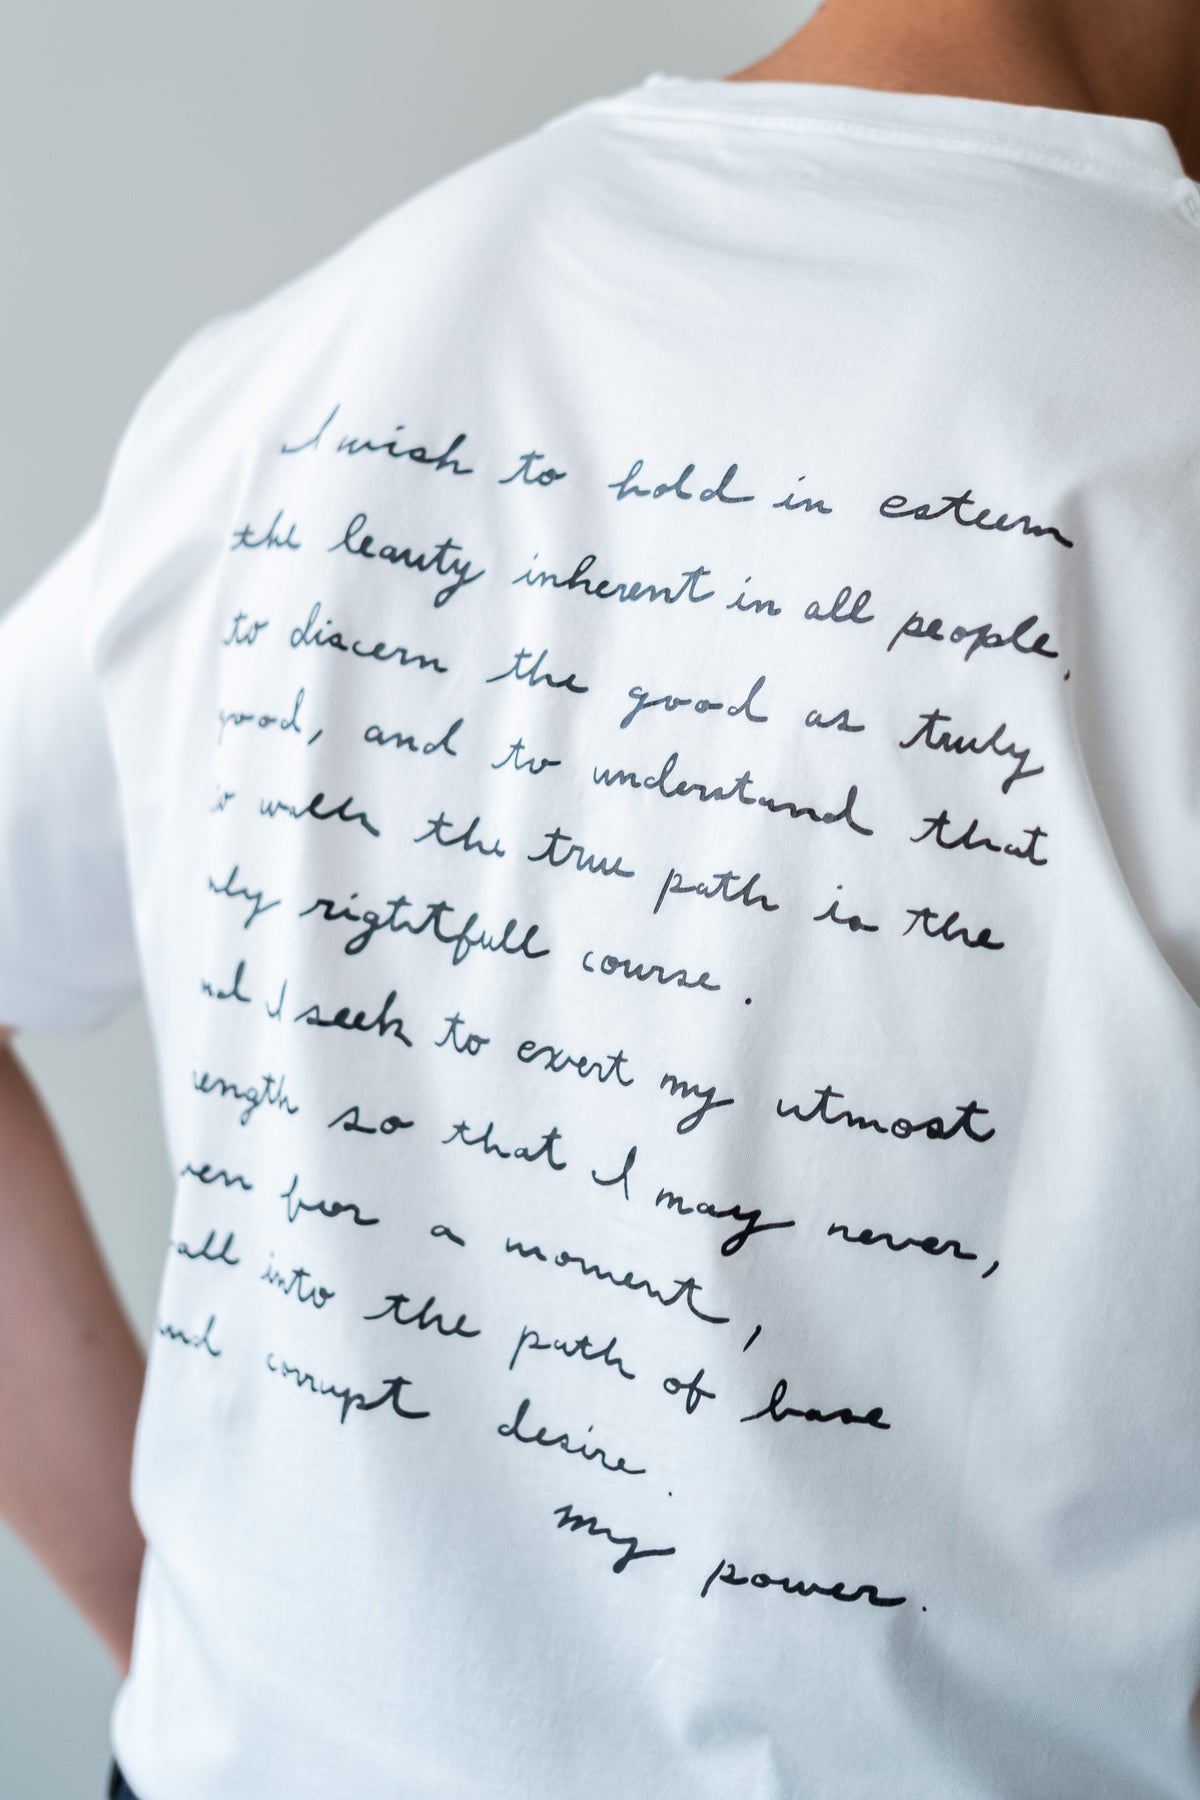 I wish to hold in esteem
the beauty inherent in all people,
to discern the good as truly
good, and to understand that
to walk the true path is the
nly rightfull course.
nd I seek to exert my utmost
rength so that I may never,
ven for a moment,
fall into the path of base
and corrupt desire.
my power.